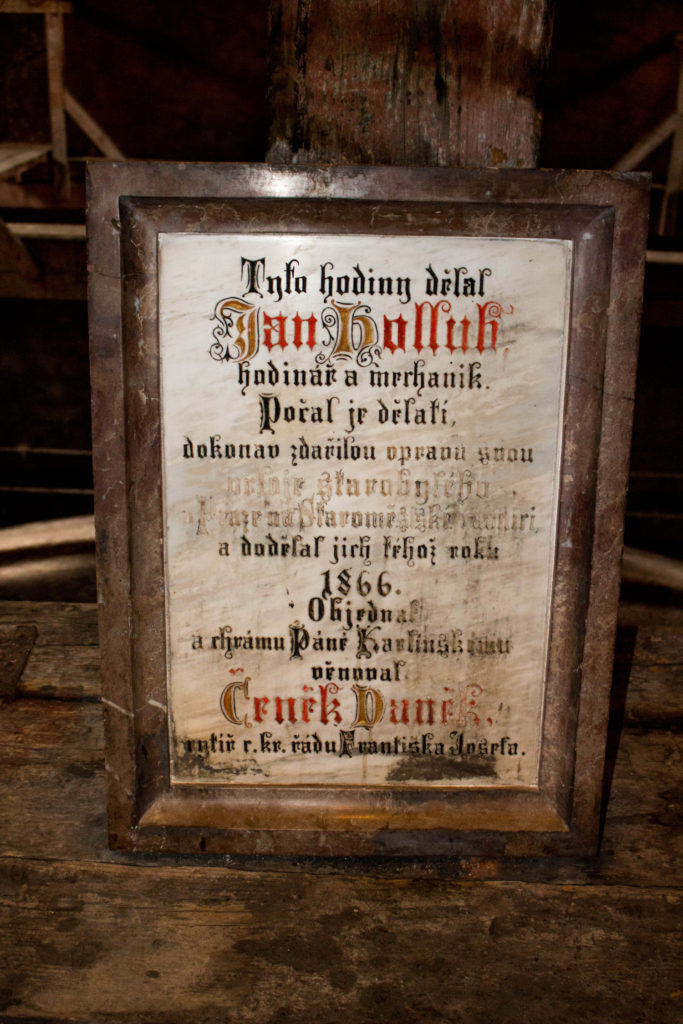 Tyto hodiny dělal
Jan Hollub,
hodinář a mechanik.
Počal je dělati,
dokonav zdařilou opravu
starobytého
na Staroměstské
a dodělal jich téhož roku
1866.
Objednal
a chrámu Páně Karlínskému
věnoval
Čeněk Daněk,
rytíř c. kr. řádu Františka Josefa.